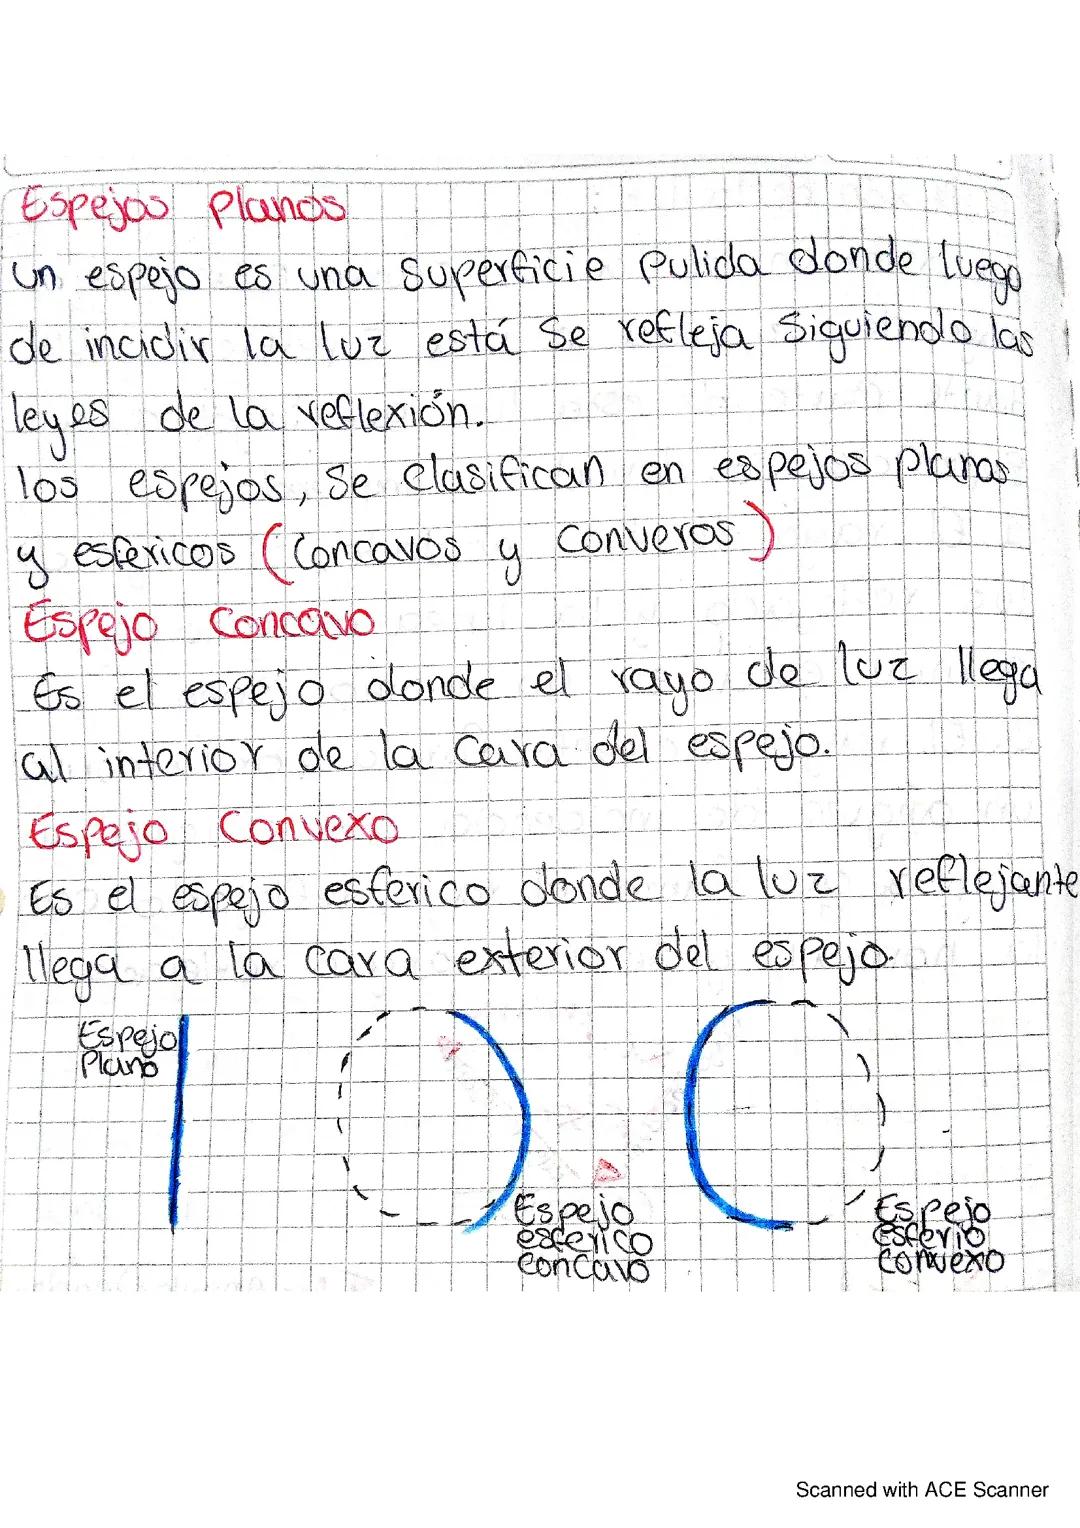 Espejos Planos
un espejo es una superficie pulida donde luego
de incidir la luz está se refleja siguiendo las
leyes de la reflexión.
los espejos, se clasifican en espejos planos
y esfericos (Concavos y converos)
Espejo Concavo
Es el espejo donde el rayo de luz llega
al interior de la cara del espejo.
Espejo Convexo
Es el espejo esferico donde la luz reflejante
llega a la cara exterior del espejo.
Espejo
Plano
Espejo
esferico
concavo
Espejo
esferio
convexo
Scanned with ACE Scanner